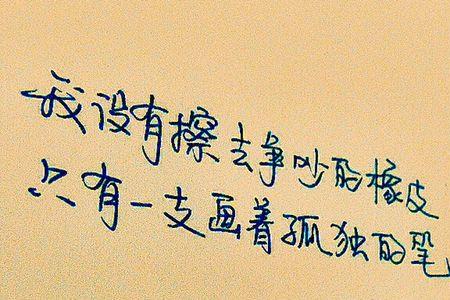 我没有擦去争吵的橡皮
只有一支画着孤独的笔